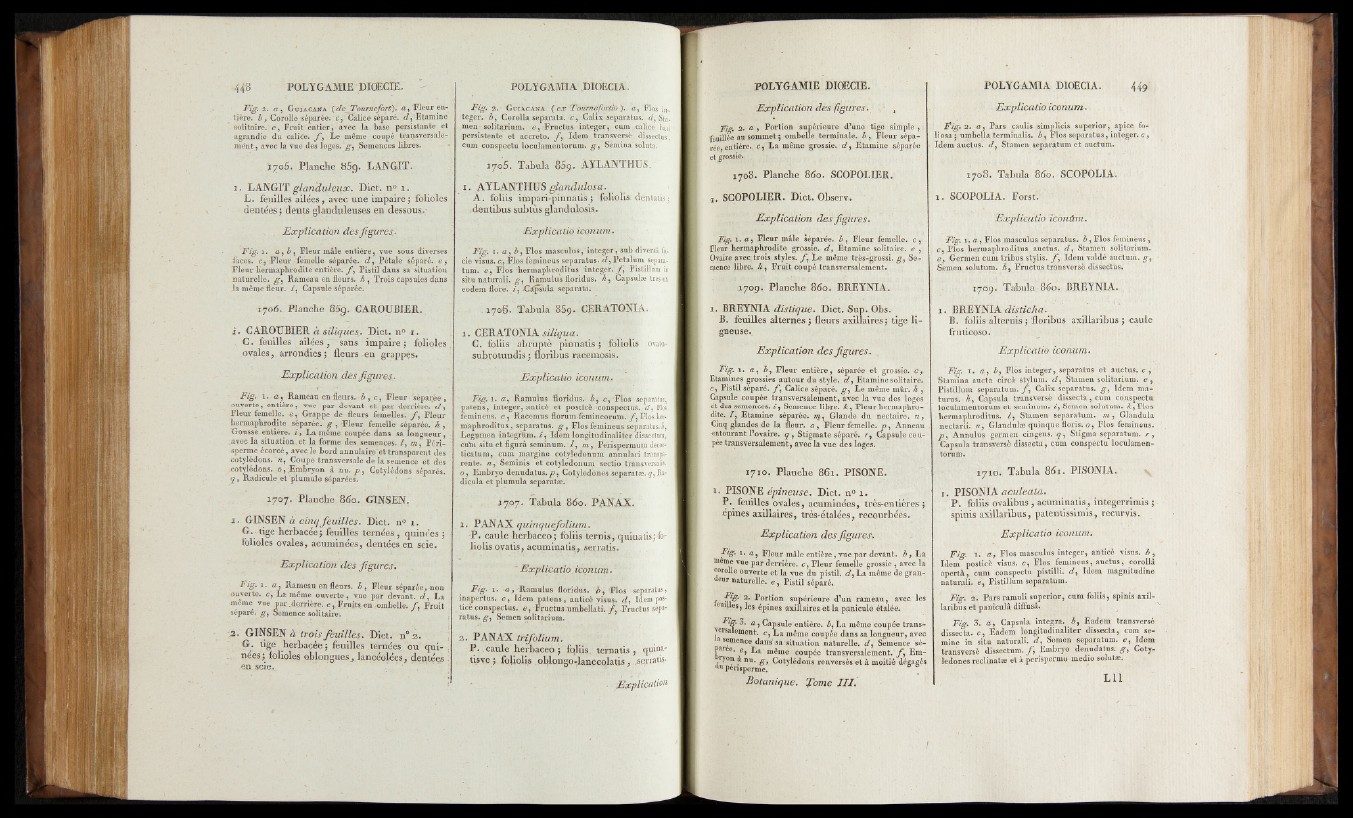 448 POLYGAMIE DIŒCIE.
Fig. 2. a, GUIACANA (de Tournefort). a, Fleur en-
tière. b, Corolle séparée. c, Calice séparé. d, Etamine
solitaire. e, Fruit entier, avec la base persistante et
agrandie du calice. f, Le même coupé transversale-
ment, avec la vue des loges. g, Semences libres.
1705. Planche 859. LANGIT.
1. LANGIT glanduleux. Dict. n° 1.
L. feuilles ailées, avec une impaire; folioles
dentées; dents glanduleuses en dessous.
Explication des figures.
Fig. 1. a, b, Fleur mâle entière, vue sous diverses
faces. c, Fleur femelle séparée. d, Pétale séparé. e,
Fleur hermaphrodite entière. f, Pistil dans sa situation
naturelle. g, Rameau en fleurs. h, Trois capsules dans
la même fleur. i, Capsule séparée.
1706. Planche 859. CAROUBIER.
1. CAROUBIER à siliques. Dict. n° 1.
C. feuilles ailées, sans impaire; folioles
ovales, arrondies; fleurs en grappes.
Explication des figures.
Fig. 1. a, Rameau en fleurs. b, c, Fleur séparée,
ouverte, entière, vue par devant et par derrière. d,
Fleur femelle. e, Grappe de fleurs femelles. f, Fleur
hermaphrodite séparée. g, Fleur femelle séparée. h,
Gousse entière. i, La même coupée dans sa longueur,
avec la situation et la forme des semences. l, m, Péri-
sperme écorcé, avec le bord annulaire et transparent des
cotylédons. n, Coupe transversale de la semence et des
cotylédons. o, Embryon à nu. p, Cotylédons séparés.
q, Radicule et plumule séparées.
1707. Planche 860. GINSEN.
1. GINSEN à cinq feuilles. Dict. n° 1.
G. tige herbacée; feuilles ternées, quinées;
folioles ovales, acuminées, dentées en scie.
Explication des figures.
Fig. 1. a, Rameau en fleurs. b, Fleur séparée, non
ouverte. c, La même ouverte, vue par devant. d, La
même vue par derrière. e, Fruits en ombelle. f, Fruit
séparé. g, Semence solitaire.
2. GINSEN à trois feuilles. Dict. n° 2.
G. tige herbacée; feuilles ternées ou qui-
nées; folioles oblongues, lancéolées, dentées
en scie.
POLYGAMIA DIOECIA.
Fig. 2. GUIACANA (ex Tournefortio). a, Flos in-
teger. b, Corolla separata. c, Calix separatus. d, Sta-
men solitarium. e, Fructus integer, cum calice basi
persistente et accreto. f, Idem transversè dissectus,
cum conspectu loculamentorum. g, Semina soluta.
1705. Tabula 859. AYLANTHUS.
1. AYLANTHUS glandulosa.
A. foliis impari-pinnatis; foliolis dentatis;
dentibus subtùs glandulosis.
Explicatio iconum.
Fig. 1. a, b, Flos masculus, integer, sub diversâ fa-
cie visus. c, Flos femineus separatus. d, Petalum separa-
tum. e, Flos hermaphroditus integer. f, Pistillum in
situ naturali. g, Ramulus floridus. h, Capsulæ tres in
eodem flore. i, Capsula separata.
1706. Tabula 859. CERATONIA.
1. CERATONIA siliqua.
C. foliis abruptè pinnatis; foliolis ovato-
subrotundis; floribus racemosis.
Explicatio iconum.
Fig. 1. a, Ramulus floridus. b, c, Flos separatus,
patens, integer, anticè et posticè conspectus. d, Flos
femineus. e, Racemus florum femineorum. f, Flos her-
maphroditus, separatus. g, Flos femineus separatus. h,
Legumen integrum. i, Idem longitudinaliter dissectum,
cum situ et figurâ seminum. l, m, Perispermum decor-
ticatum, cum margine cotyledonum annulari transpa-
rente. n, Seminis et cotyledonum sectio transversalis.
o, Embryo denudatus. p, Cotyledones separatæ. q, Ra-
dicula et plumula separatæ.
1707. Tabula 860. PANAX.
1. PANAX quinquefolium.
P. caule herbaceo; foliis ternis, quinatis; fo-
liolis ovatis, acuminatis, serratis.
Explicatio iconum.
Fig. 1. a, Ramulus floridus. b, Flos separatus,
inapertus. c, Idem patens, anticè visus. d, Idem pos-
ticè conspectus. e, Fructus umbellati. f, Fructus sepa-
ratus. g, Semen solitarium.
2. PANAX trifolium.
P. caule herbaceo; foliis ternatis, quina-
tisve; foliolis oblongo-lanceolatis, serratis.
Explication
POLYGAMIE DIŒCIE.
Explication des figures.
Fig. 2. a, Portion supérieure d'une tige simple,
feuillée au sommet; ombelle terminale. b, Fleur sépa-
rée, entière. c, La même grossie. d, Etamine séparée
et grossie.
1708. Planche 860. SCOPOLIER.
1. SCOPOLIER. Dict. Observ.
Explication des figures.
Fig. 1. a, Fleur mâle séparée. b, Fleur femelle. c,
Fleur hermaphrodite grossie. d, Etamine solitaire. e,
Ovaire avec trois styles. f, Le même très-grossi. g, Se-
mence libre. h, Fruit coupé transversalement.
1709. Planche 860. BREYNIA.
1. BREYNIA distique. Dict. Sup. Obs.
B. feuilles alternes; fleurs axillaires; tige li-
gneuse.
Explication des figures.
Fig. 1. a, b, Fleur entière, séparée et grossie. c,
Etamines grossies autour du style. d, Etamine solitaire.
e, Pistil séparé. f, Calice séparé. g, Le même mûr. h,
Capsule coupée transversalement, avec la vue des loges
et des semences. i, Semence libre. k, Fleur hermaphro-
dite. l, Etamine séparée. m, Glande du nectaire. n,
Cinq glandes de la fleur. o, Fleur femelle. p, Anneau
entourant l'ovaire. q, Stigmate séparé. r, Capsule cou-
pée transversalement, avec la vue des loges.
1710. Planche 861. PISONE.
1. PISONE épineuse. Dict. n° 1.
P. feuilles ovales, acuminées, très-entières;
épines axillaires, très-étalées, recourbées.
Explication des figures.
Fig. 1. a, Fleur mâle entière, vue par devant. b, La
même vue par derrière. c, Fleur femelle grossie, avec la
corolle ouverte et la vue du pistil. d, La même de gran-
deur naturelle. e, Pistil séparé.
Fig. 2. Portion supérieure d'un rameau, avec les
feuilles, les épines axillaires et la panicule étalée.
Fig. 3. a, Capsule entière. b, La même coupée trans-
versalement. c, La même coupée dans sa longueur, avec
la semence dans sa situation naturelle. d, Semence sé-
parée. e, La même coupée transversalement. f, Em-
bryon à nu. g, Cotylédons renversés et à moitié dégagés
du périsperme.
Botanique. Tome III.
POLYGAMIA DIOECIA. 449
Explicatio iconum.
Fig. 2. a, Pars caulis simplicis superior, apice fo-
liosa; umbella terminalis. b, Flos separatus, integer. c,
Idem auctus. d, Stamen separatum et auctum.
1708. Tabula 860. SCOPOLIA.
1. SCOPOLIA. Forst.
Explicatio iconum.
Fig. 1. a, Flos masculus separatus. b, Flos femineus,
c, Flos hermaphroditus auctus. d, Stamen solitarium.
e, Germen cum tribus stylis. f, Idem valdè auctum. g,
Semen solutum. h, Fructus transversè dissectus.
1709. Tabula 860. BREYNIA.
1. BREYNIA disticha.
B. foliis alternis; floribus axillaribus; caule
fruticoso.
Explicatio iconum.
Fig. 1. a, b, Flos integer, separatus et auctus. c,
Stamina aucta circà stylum. d, Stamen solitarium. e,
Pistillum separatum. f, Calix separatus. g, Idem ma-
turus. h, Capsula transversè dissecta, cum conspectu
loculamentorum et seminum. i, Semen solutum. k, Flos
hermaphroditus. l, Stamen separatum. m, Glandula
nectarii. n, Glandulæ quinque floris. o, Flos femineus.
p, Annulus germen cingens. q, Stigma separatum. r,
Capsula transversè dissecta, cum conspectu loculamen-
torum.
1710. Tabula 861. PISONIA.
1. PISONIA aculeata.
P. foliis ovalibus, acuminatis, integerrimis;
spinis axillaribus, patentissimis, recurvis.
Explicatio iconum.
Fig. 1. a, Flos masculus integer, anticè visus. b,
Idem posticè visus. c, Flos femineus, auctus, corollâ
apertâ, cum conspectu pistilli. d, Idem magnitudine
naturali. e, Pistillum separatum.
Fig. 2. Pars ramuli superior, cum foliis, spinis axil-
laribus et paniculâ diffusâ.
Fig. 3. a, Capsula integra. b, Eadem transversè
dissecta. c, Eadem longitudinaliter dissecta, cum se-
mine in situ naturali. d, Semen separatum. e, Idem
transversè dissectum. f, Embryo denudatus. g, Coty-
ledones reclinatæ et à perispermo medio solutæ.
Lll